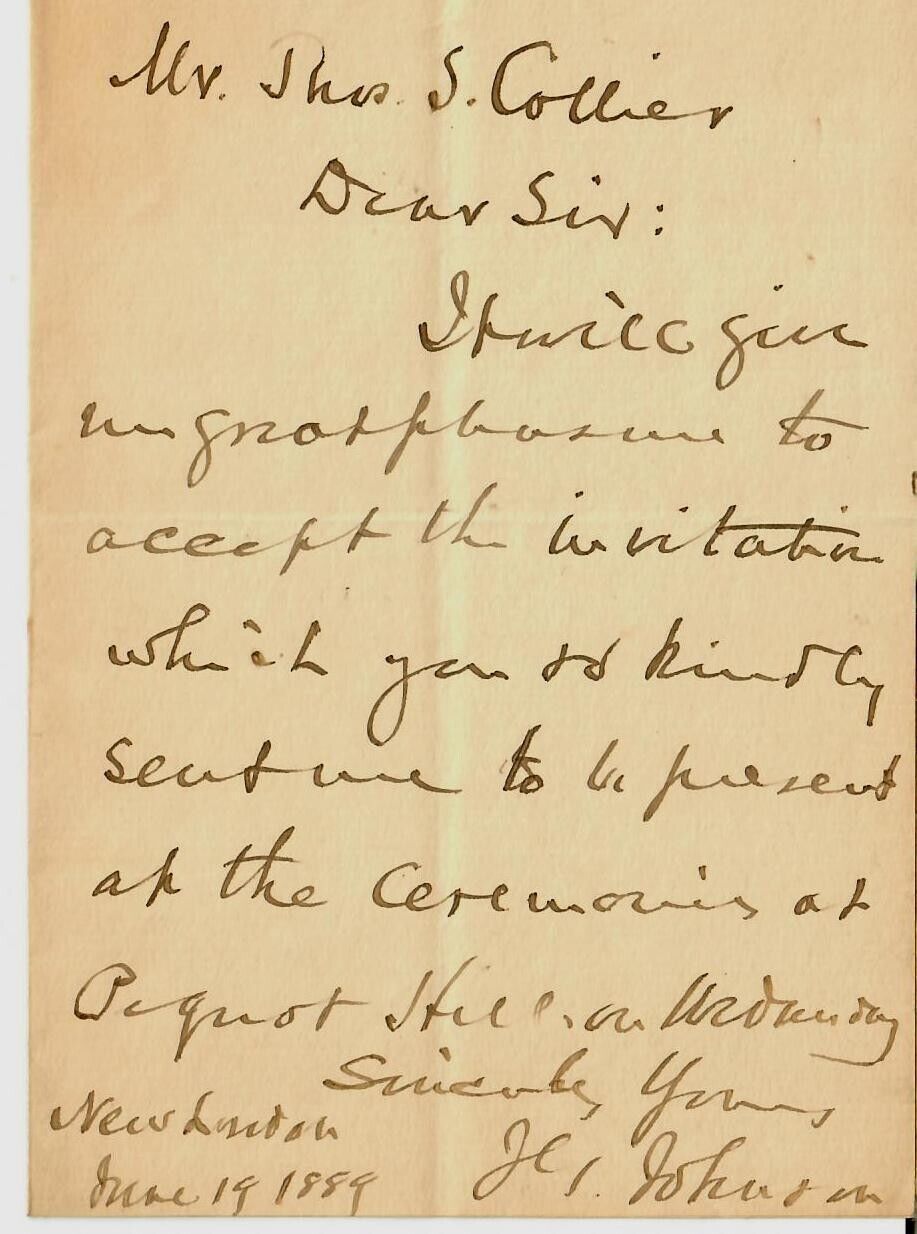 Mr. Thos. S. Collier
Dear Sir:
It will give
me great pleasure to
accept the invitation
which you so kindly
sent me to be present
at the ceremonies at
Pequot Hill, on Wednesday
Sincerely Yours,
New London
June 19 1889
Johnson